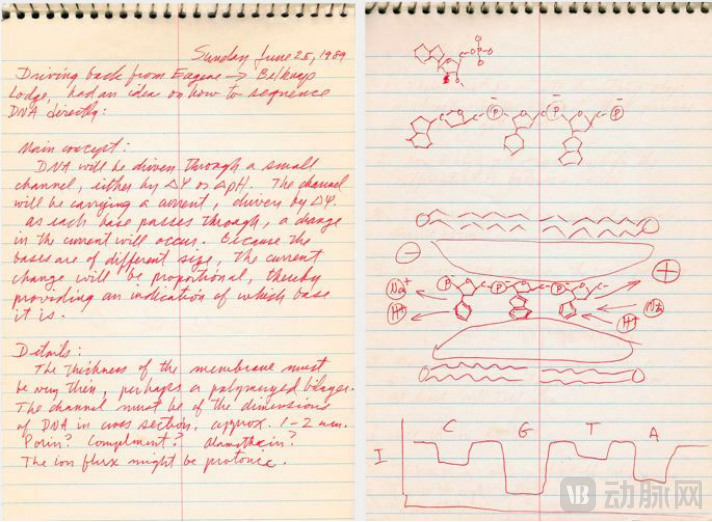 Sunday June 25, 1989
Driving back from Eugene → Belknap
Lodge, had an idea on how to sequence
DNA directly:
Main concept:
DNA will be driven through a small
channel, either by ΔΨ or ΔpH. The channel
will be carrying a current, driven by ΔΨ.
As each base passes through, a change
in the current will occur. Because the
bases are of different size, the current
change will be proportional, thereby
providing an indication of which base
it is.
Details:
The thickness of the membrane must
be very thin, perhaps a polymerized bilayer.
The channel must be of the dimensions
of DNA in cross section, approx. 1-2 nm.
Porin? Complement? Alamethicin?
The ion flux might be protonic.
P
P P P
− +
Na+ P P P
H+ H+ Na
C G T A
I
VB 动脉网